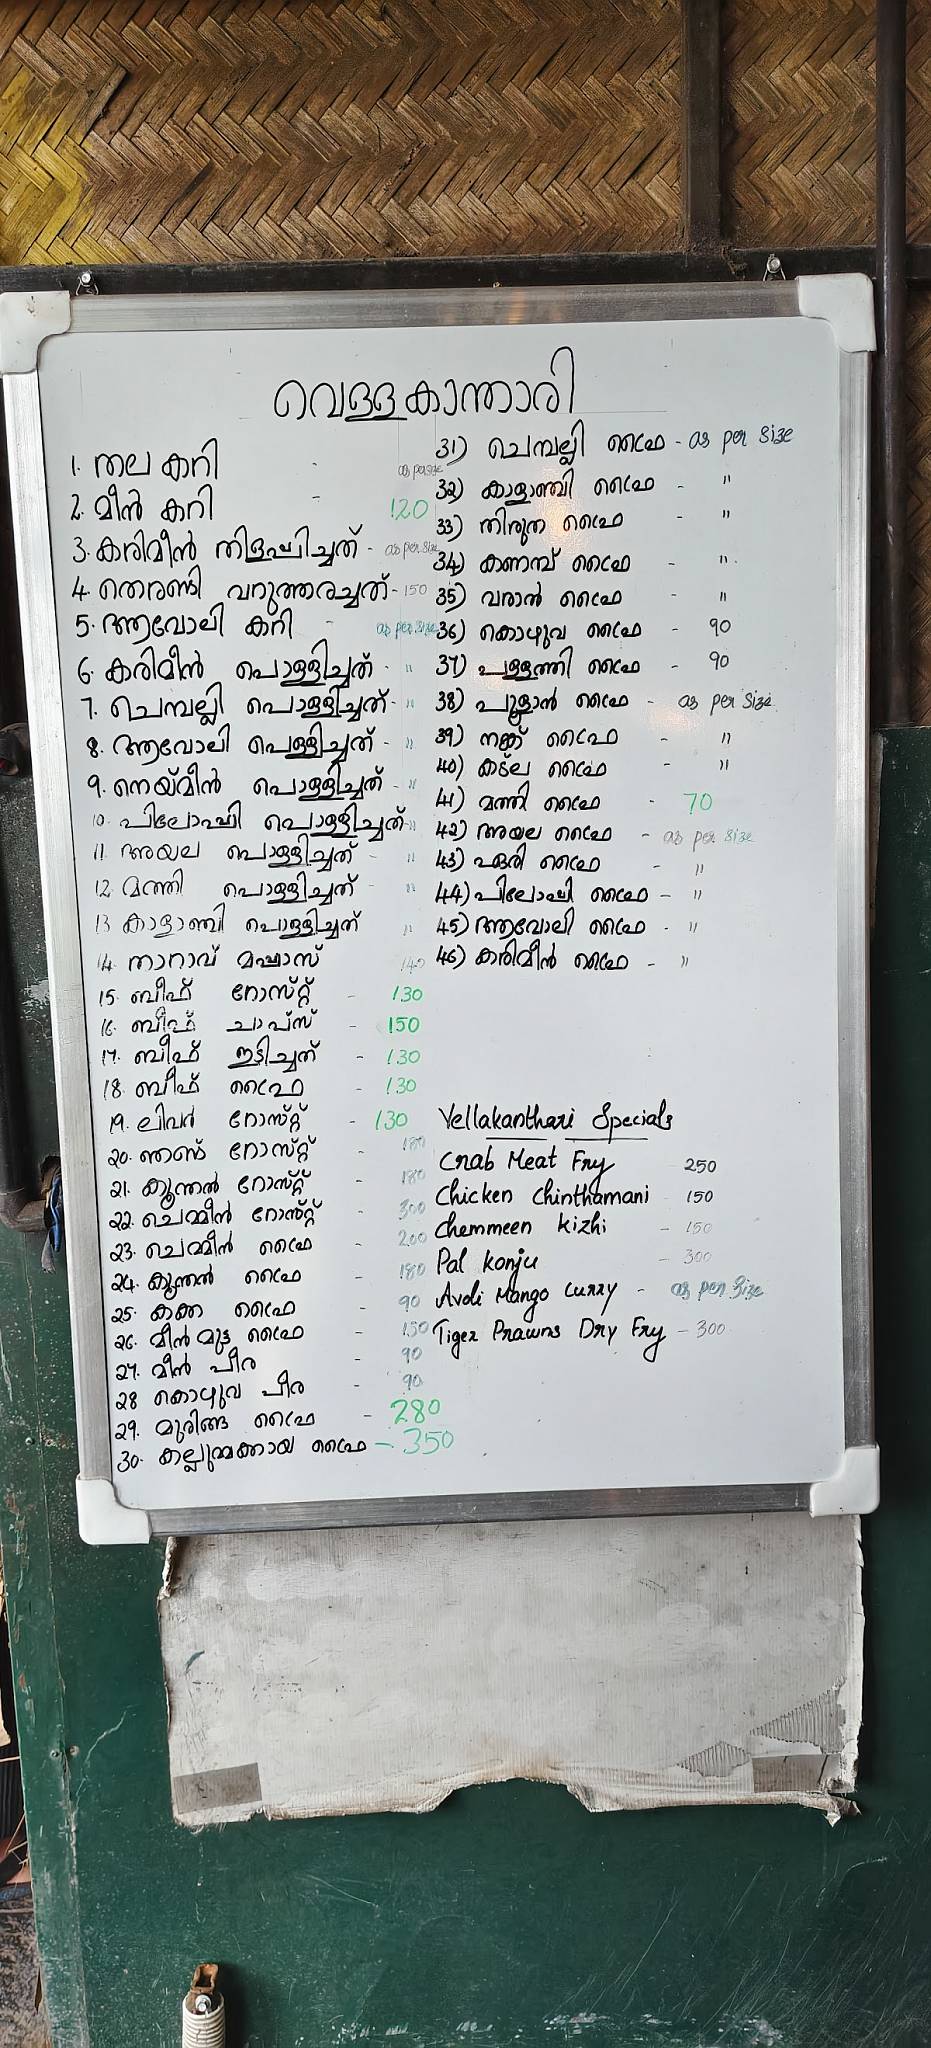 വെള്ളകാന്താരി
1. തല കറി - as per size
2. മീൻ കറി - 120
3. കരിമീൻ തിളപ്പിച്ചത് - as per size
4. തെരണ്ടി വറുത്തരച്ചത് - 150
5. ആവോലി കറി - as per size
6. കരിമീൻ പൊള്ളിച്ചത് - "
7. ചെമ്പല്ലി പൊള്ളിച്ചത് - "
8. ആവോലി പെള്ളിച്ചത് - "
9. നെയ്മീൻ പൊള്ളിച്ചത് - "
10. പിലോപ്പി പൊള്ളിച്ചത് - "
11. അയല പൊള്ളിച്ചത് - "
12. മത്തി പൊള്ളിച്ചത് - "
13. കാളാഞ്ചി പൊള്ളിച്ചത് "
14. താറാവ് മപ്പാസ് 140
15. ബീഫ് റോസ്റ്റ് - 130
16. ബീഫ് ചാപ്സ് - 150
17. ബീഫ് ഇടിച്ചത് - 130
18. ബീഫ് ഫ്രൈ - 130
19. ലിവർ റോസ്റ്റ് - 130
20. ഞണ്ട് റോസ്റ്റ് - 180
21. കൂന്തൽ റോസ്റ്റ് - 180
22. ചെമ്മീൻ റോസ്റ്റ് - 300
23. ചെമ്മീൻ ഫ്രൈ - 200
24. കൂന്തൽ ഫ്രൈ - 180
25. കക്ക ഫ്രൈ - 90
26. മീൻ മുട്ട ഫ്രൈ - 150
27. മീൻ പീര - 90
28 കൊഴുവ പീര - 90
29. മുരിങ്ങ ഫ്രൈ - 280
30. കല്ലുമ്മക്കായ ഫ്രൈ - 350
31) ചെമ്പല്ലി ഫ്രൈ - as per size
32) കാളാഞ്ചി ഫ്രൈ - "
33) തിരുത ഫ്രൈ - "
34) കണമ്പ് ഫ്രൈ - "
35) വരാൽ ഫ്രൈ - "
36) കൊഴുവ ഫ്രൈ - 90
37) പള്ളത്തി ഫ്രൈ - 90
38) പൂളാൻ ഫ്രൈ - as per size
39) നങ്ക് ഫ്രൈ - "
40) കട്ല ഫ്രൈ - "
41) മത്തി ഫ്രൈ - 70
42) അയല ഫ്രൈ - as per size
43) ഏരി ഫ്രൈ - "
44) പിലോപ്പി ഫ്രൈ - "
45) ആവോലി ഫ്രൈ - "
46) കരിമീൻ ഫ്രൈ - "
Vellakanthari Specials
Crab Meat Fry 250
Chicken Chinthamani - 150
Chemmeen kizhi - 150
Pal konju - 300
Avoli Mango Curry - as per size
Tiger Prawns Dry Fry - 300